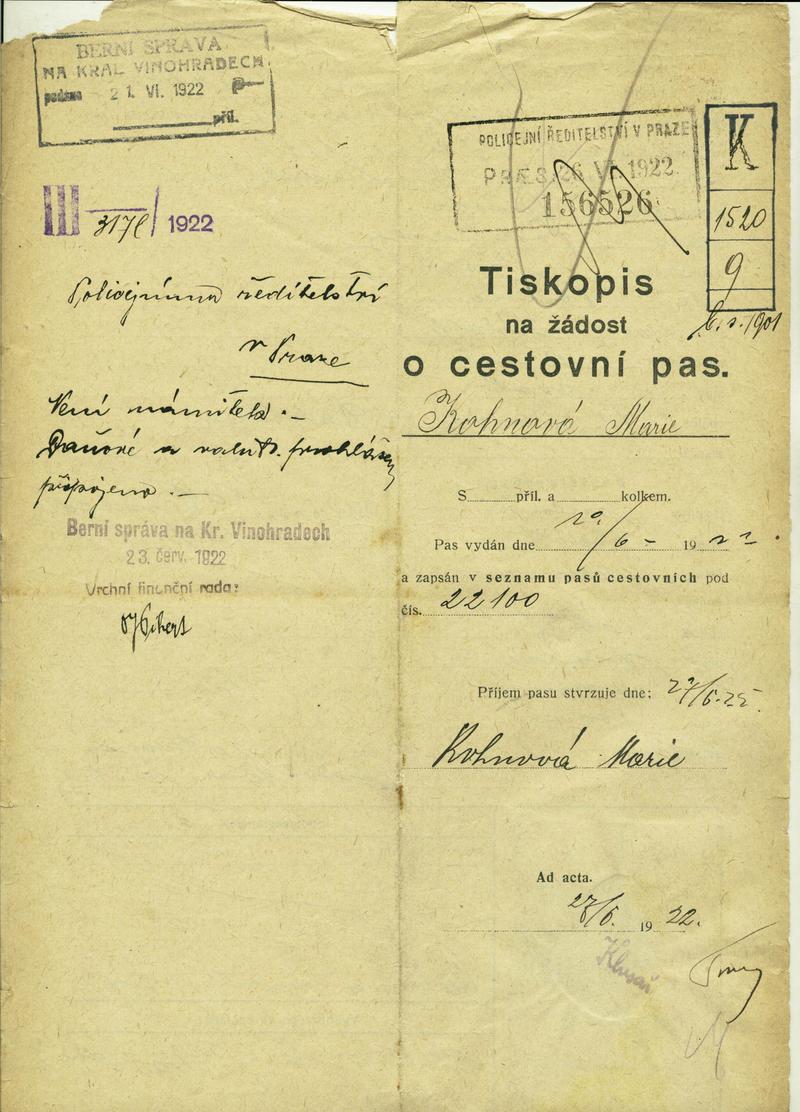 BERNÍ SPRÁVA
NA KRÁL. VINOHRADECH.
podáno 21. VI. 1922
příl.
III 3178/1922
Policejnímu ředitelství
v Praze
Není námitek.–
Daňové a valut. prohlášení
připojeno.–
Berní správa na Kr. Vinohradech
23. červ. 1922
Vrchní finanční rada:
POLICEJNÍ ŘEDITELSTVÍ V PRAZE
PRAES. 26. VI. 1922
156526
K
1520
9
1901
Tiskopis
na žádost
o cestovní pas.
Kohnová Marie
S příl. a kolkem.
Pas vydán dne /6 – 1922.
a zapsán v seznamu pasů cestovních pod
čís. 22100
Příjem pasu stvrzuje dne:
Kohnová Marie
Ad acta.
1922.